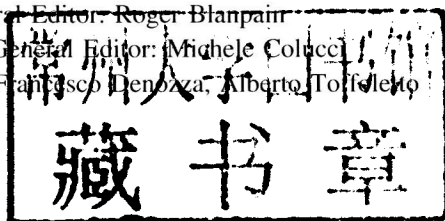 ral Editor: Roger Blanpain
General Editor: Michele Colucci
Francesco Denozza, Alberto Toffoletto
藏书章